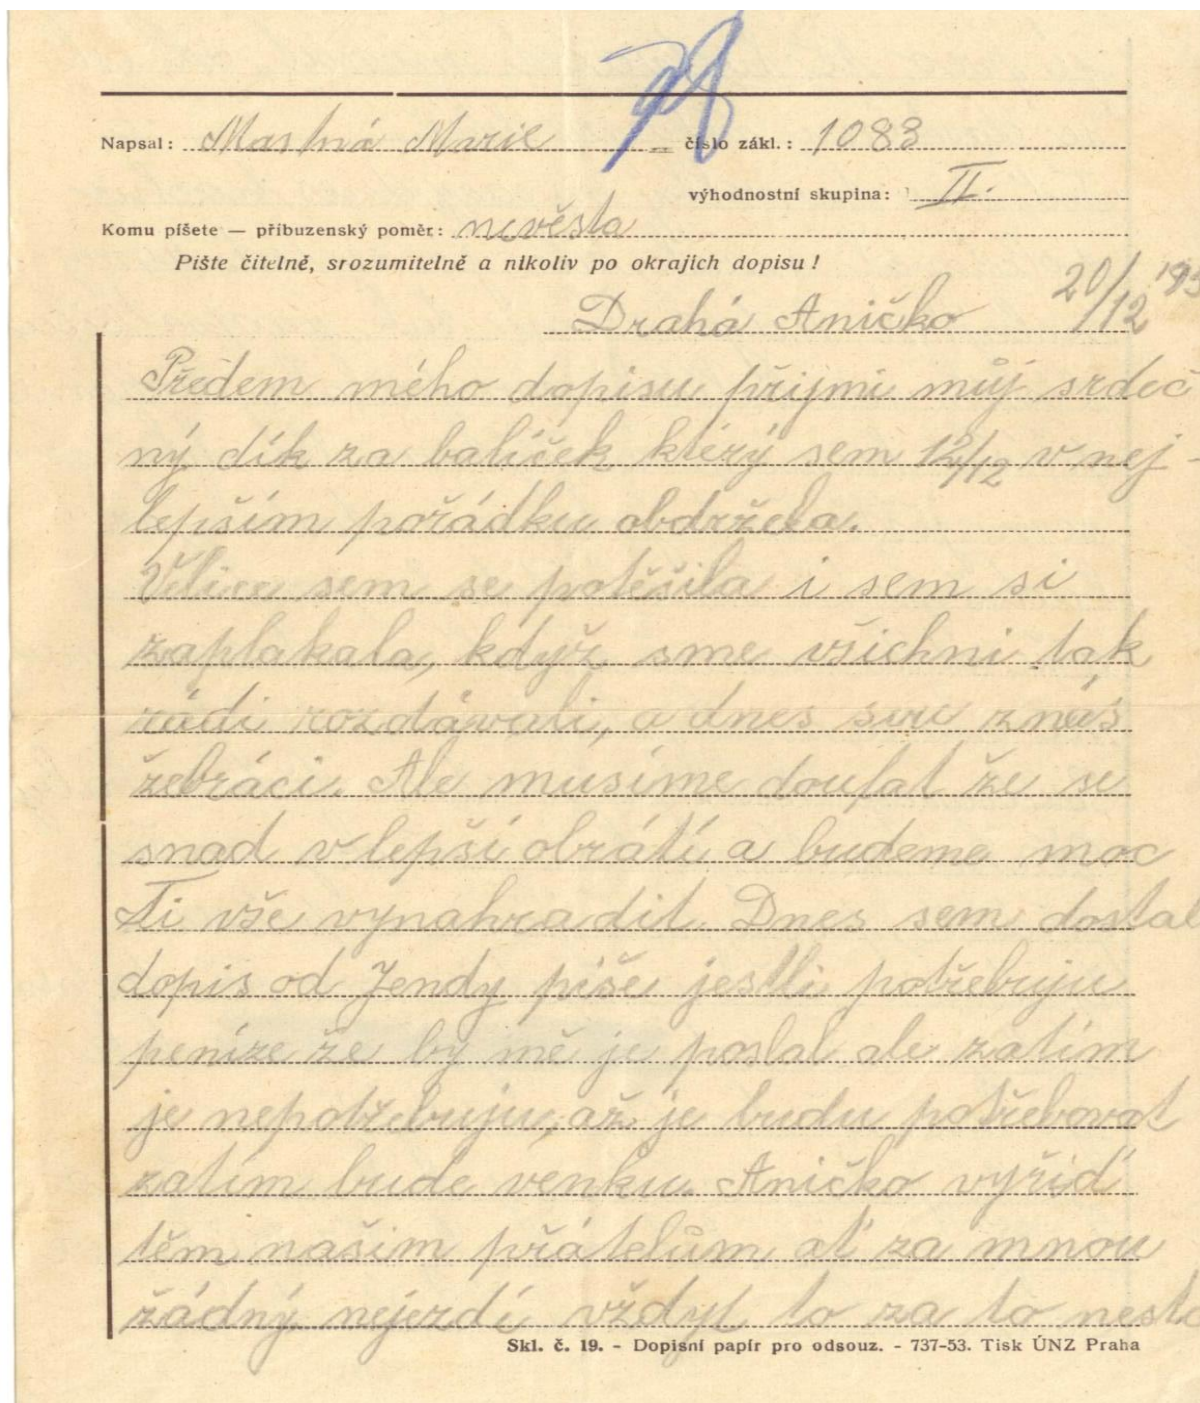 Napsal: Mastná Marie číslo zákl.: 1083
výhodnostní skupina: II.
Komu píšete — příbuzenský poměr: nevěsta
Pište čitelně, srozumitelně a nikoliv po okrajích dopisu!
Drahá Aničko 20/12
Předem mého dopisu přijmi můj srdeč
ný dík za balíček který sem 12/12 v nej-
lepším pořádku obdržela.
Velice sem se potěšila i sem si
zaplakala, když sme všichni tak
rádi rozdávali, a dnes sou znás
žebráci. Ale musíme doufat že se
snad v lepší obrátí a budeme moc
Ti vše vynahradit. Dnes sem dostal
dopis od Jendy píše jestli potřebuju
peníze že by mě je poslal ale zatím
je nepotřebuju, až je budu potřebovat
zatím bude venku. Aničko vyřiď
těm našim přátelům ať za mnou
žádný nejezdí vždyt to za to nesto
Skl. č. 19. - Dopisní papír pro odsouz. - 737-53. Tisk ÚNZ Praha